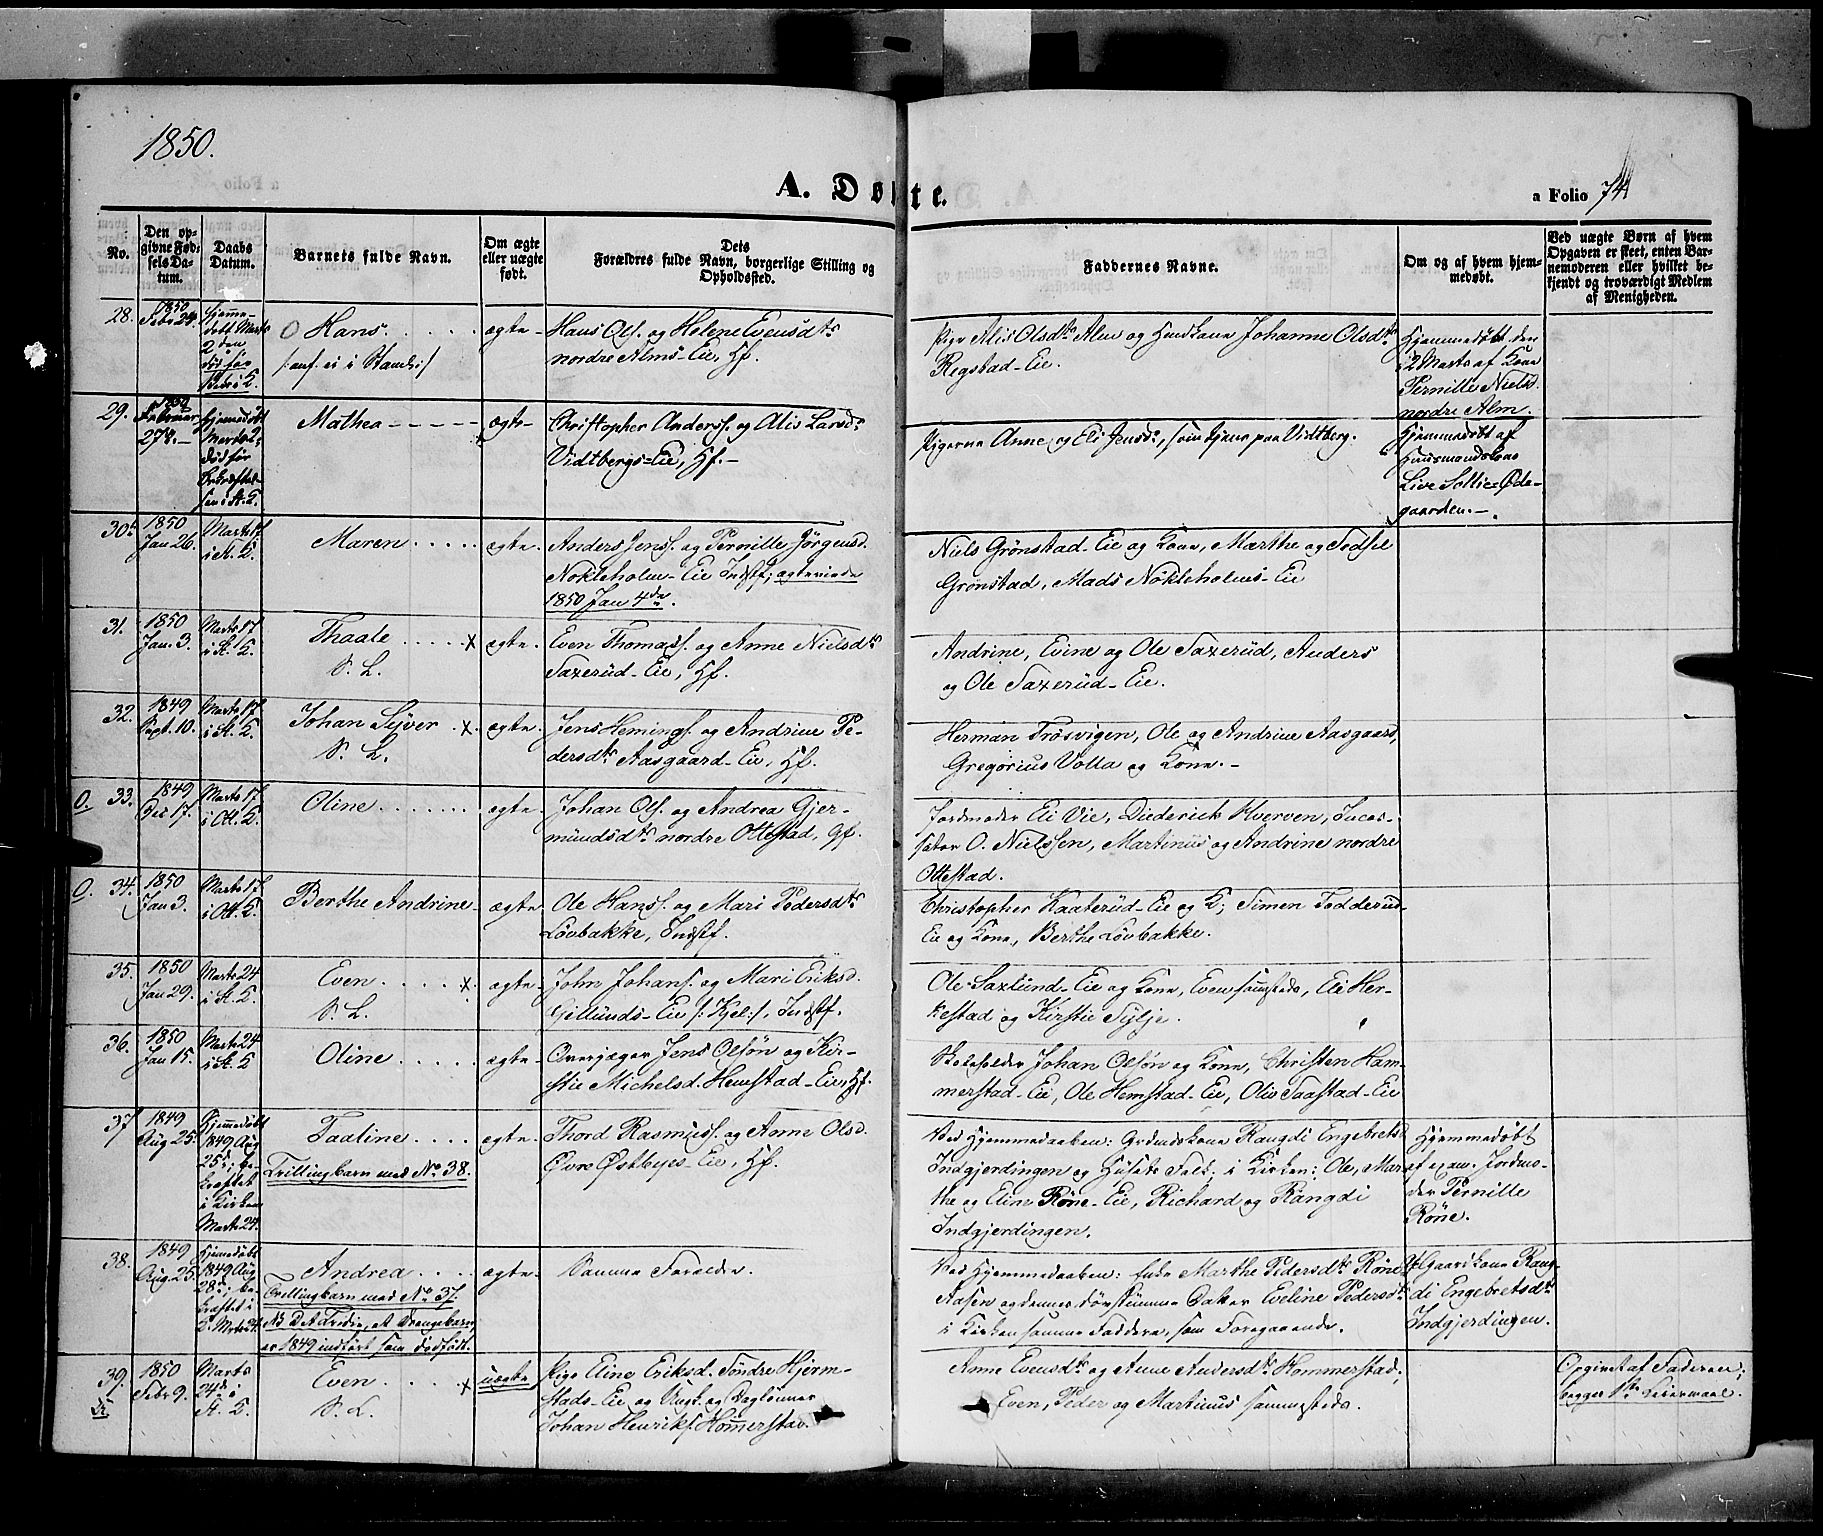 1850.
A. Døbte.
a Folio 74
No.
Den op-
givne Fød-
sels Da-
tum.
Daabs
Datum.
Barnets fulde Navn.
Om ægte
eller uægte
født.
Dets
Forældres fulde Navn, borgerlige Stilling og
Opholdssted.
Faddernes Navne.
Om og af hvem hjem-
medøbt.
Ved uægte Børn af hvem
Opgaven er skeet, enten Bar-
nemoderen eller hvilket be-
kjendt og troværdigt Medlem
af Menigheden.
28.
1850
Febr 24.
Hjemme-
døbt Marts
2den
død før
i K.
O Hans . . . .
ægte
Hans Ols. og Helene Evensdtr
nordre Alms-Eie, Hf.
Pige Alis Olsdtr Alm og Huuskone Johanne Olsdtr
Regstad-Eie.
Hjemmedøbt den
2 Marts af Kone
Pernille Niels.
nordre Alm.
29.
1850
Februar
27de.
Hjemmedøbt
Marts 2.
død før
Bekræftel-
sen i K.
Mathea - - - - -
ægte
Christopher Anderss. og Alis Larsd.
Vidtbergs-Eie, Hf.
Pigerne Anne og Eli Jensd., som tjene paa Vidtberg.
Hjemmedøbt af
Huusmandskone
Live Sollie-Øde-
gaarden.
30.
1850
Jan 26.
Marts 17
i St. K.
Maren . . . . .
ægte.
Anders Jens. og Pernille Jørgensd.
Nokleholm-Eie Indst; ægteviede
1850 Jan 4de.
Niels Grønstad-Eie og Kone, Marthe og Sodsel
Grønstad, Mads Nokleholms-Eie
31.
1850
Jan. 3.
Marts 17
i St. K.
Thaale . . . . . x
S. L.
ægte.
Even Thomass. og Anne Nielsdtr
Saxerud-Eie, Hf.
Andrine, Evine og Ole Saxerud, Anders
og Ole Saxerud-Eie.
32.
1849
Sept. 10.
Marts 17
i St. K.
Johan Syver . x.
S. L.
ægte.
Jens Hemings. og Andrine Pe-
dersdtr Aasgaard-Eie, Hf.
Herman Frøsvigen, Ole og Andrine Aasgaard,
Gregorius Volla og Kone.
O. 33.
1849
Dec 17.
Marts 17.
i Ott. K.
Oline . . . . . . .
ægte.
Johan Ols. og Andrea Gjer-
mundsdtr nordre Ottestad, Gf.
Jordmoder Eli Vie, Diederick Hverven,
O. Nielssen, Martinus og Andrine nordre
Ottestad.
O. 34.
1850
Jan 3.
Marts 17.
i Ott. K.
Berthe Andrine
ægte.
Ole Hans. og Mari Pedersdtr
Løvbakke, Indstf.
Christopher Kaaterud-Eie og K; Simen Todderud-
Eie og Kone, Berthe Løvbakke.
35.
1850
Jan 29.
Marts 24
i St. K.
Even . . . . . x.
S. L.
ægte.
John Johans. og Mari Eriksd.
Gillunds-Eie /: Kjel:/, Indstf.
Ole Saxlund-Eie og Kone, Even sammesteds, Eli Her-
kestad og Kirstie Sylje.
36.
1850
Jan 15.
Marts 24
i St. K
Oline . . . . .
ægte.
Overjæger Jens Olsøn og Kir-
stie Michelsd. Hemstad-Eie, Hf.
Skoleholder Johan Olsøn og Kone, Christen Ham-
merstad-Eie, Ole Hemstad-Eie, Oliv Saastad-Eie
37
1849
Aug 25.
Hjemmedøbt
1849 Aug
25de; be-
kræftet
i Kirken
Marts 24.
Taaline . . . .
Trillingbarn med No 38.
ægte.
Thord Rasmuss. og Anne Olsd.
Øvre Østbyes-Eie, Hf.
Ved Hjemmedaaben: Grdmdskone Rangdi Engebretsd
Indgjerdingen og Husets Folk. i Kirken: Ole, Mar-
the og Elin Røne-Eie, Richard og Rangdi
Indgjerdingen.
Hjemmedøbt
af exam. Jordmo-
der Pernille
Røne.
38.
1849
Aug 25.
Hjemmedøbt
1849 Aug
28de; be-
kræftet i
K. Marts 24.
Andrea . . . .
Trillingbarn med No 37.
NB Det Tredie, et Drengebarn
er 1849 indført som dødfødt.
ægte.
Samme Forældre.
Ved Hjemmedaaben: Enke Marthe Pedersdtr Røne
Aasen og dennes døvstumme Datter Eveline Pedersdtr
i Kirken samme Faddere, som Foregaaende.
af Gaardkone Rang-
di Engebretsdtr
Indgjerdingen.
39.
1850
Febr 9.
Marts
24de i
St. K.
Even . . . . x
S. L.
uægte
Pige Eline Eriksd. Søndre Hjerm-
stads-Eie og Ungk. og Dagleinner
Johan Henriks. Hommerstad.
Anne Evensdtr og Anne Andersdtr Hommerstad;
Even, Peder og Martinus sammesteds.
Opgivet af Faderen;
begges 1ste Leiermaal.